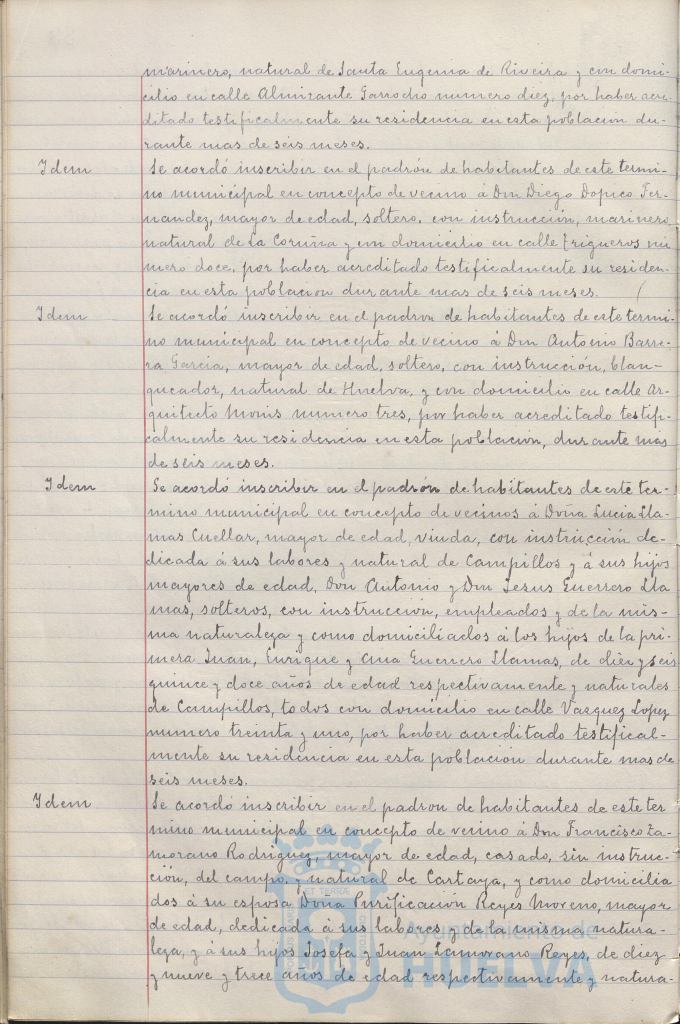 marinero, natural de Santa Eugenia de Riveira y con domi-
cilio en calle Almirante Garrocho numero diez, por haber acre-
ditado testificalmente su residencia en esta poblacion du-
rante mas de seis meses.
Idem
Se acordó inscribir en el padrón de habitantes de este termi-
no municipal en concepto de vecino á Don Diego Dopico Fer-
nandez, mayor de edad, soltero, con instrucción, marinero
natural de La Coruña y con domicilio en calle Trigueros nu
mero doce, por haber acreditado testificalmente su residen-
cia en esta poblacion durante mas de seis meses.
Idem
Se acordó inscribir en el padron de habitantes de este termi-
no municipal en concepto de vecino á Don Antonio Barre-
ra Garcia, mayor de edad, soltero, con instrucción, blan-
queador, natural de Huelva, y con domicilio en calle Ar-
quitecto Monis numero tres, por haber acreditado testifi-
calmente su residencia en esta poblacion, durante mas
de seis meses.
Idem
Se acordó inscribir en el padrón de habitantes de este ter-
mino municipal en concepto de vecinos á Doña Lucia Lla-
mas Cuellar, mayor de edad, viuda, con instrucción de-
dicada á sus labores y natural de Campillos y á sus hijos
mayores de edad, Don Antonio y Don Jesus Guerrero Lla
mas, solteros, con instrucción, empleados y de la mis-
ma naturaleza y como domiciliados á los hijos de la pri-
mera Juan, Enrique y Ana Guerrero Llamas, de diez y seis
quince y doce años de edad respectivamente y naturales
de Campillos, todos con domicilio en calle Vazquez Lopez
numero treinta y uno, por haber acreditado testifical-
mente su residencia en esta poblacion durante mas de
seis meses.
Idem
Se acordó inscribir en el padron de habitantes de este ter
mino municipal en concepto de vecino á Don Francisco Za-
morano Rodriguez, mayor de edad, casado, sin instruc-
ción, del campo, y natural de Cartaya, y como domicilia
dos á su esposa Doña Purificación Reyes Moreno, mayor
de edad, dedicada á sus labores y de la misma natura-
leza, y á sus hijos Josefa y Juan Zamorano Reyes, de diez
y nueve y trece años de edad respectivamente y natura-
Ayuntamiento de
HUELVA